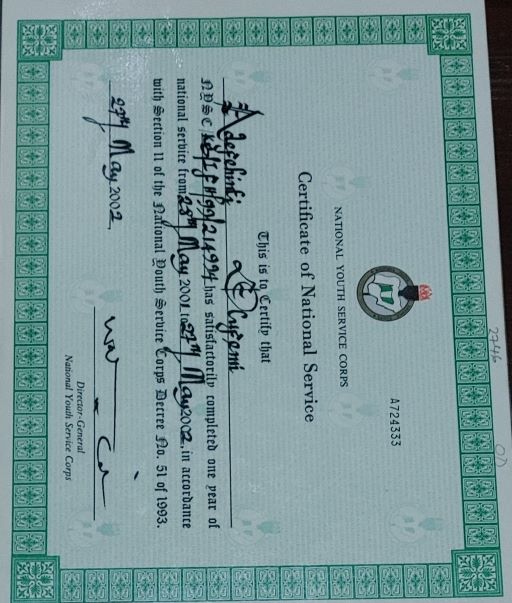 2746
A724333
NATIONAL YOUTH SERVICE CORPS
Certificate of National Service
This is to Certify that
Adefehinti Olufemi
NYSC has satisfactorily completed one year of
national service from 28th May 2001 to 27th May 2002, in accordance
with Section 11 of the National Youth Service Corps Decree No. 51 of 1993.
27th May 2002,
Director-General
National Youth Service Corps